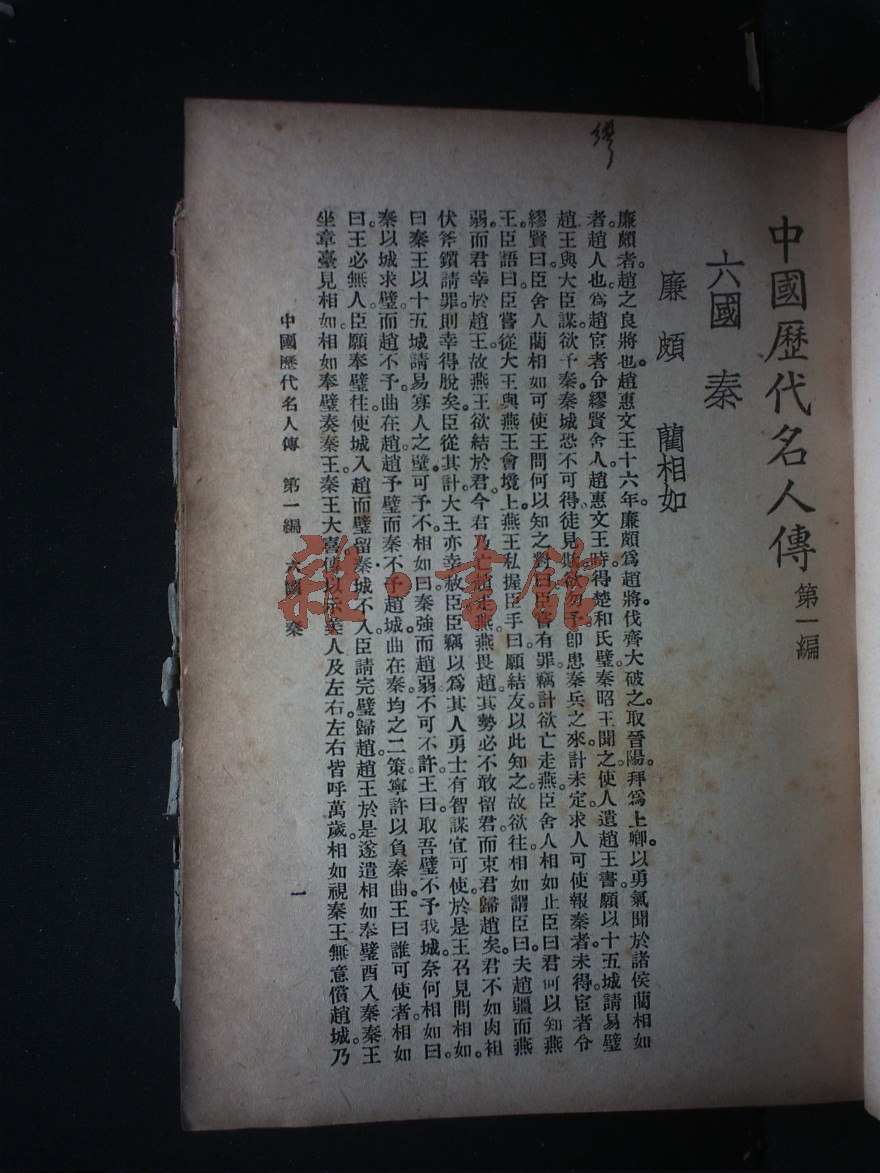 繆
中國歷代名人傳 第一編
六國 秦
廉頗 藺相如
廉頗者趙之良將也。趙惠文王十六年。廉頗爲趙將伐齊大破之。取晉陽。拜爲上卿。以勇氣聞於諸侯藺相如
者。趙人也。爲趙宦者令繆賢舍人。趙惠文王時。得楚和氏璧秦昭王聞之。使人遺趙王書。願以十五城請易璧
趙王與大臣謀。欲予秦。秦城恐不可得。徒見欺。欲勿予。卽患秦兵之來。計未定。求人可使報秦者。未得。宦者令
繆賢曰。臣舍人藺相如可使。王問何以知之。對曰。臣嘗有罪。竊計欲亡走燕。臣舍人相如止臣曰。君何以知燕
王。臣語曰。臣嘗從大王與燕王會境上。燕王私握臣手曰。願結友。以此知之。故欲往。相如謂臣曰。夫趙彊而燕
弱。而君幸於趙王。故燕王欲結於君。今君乃亡趙走燕。燕畏趙。其勢必不敢留君。而束君歸趙矣。君不如肉袒
伏斧鑕請罪。則幸得脫矣。臣從其計。大王亦幸赦臣。臣竊以爲其人勇士有智謀。宜可使。於是王召見。問相如。
曰。秦王以十五城請易寡人之璧。可予不。相如曰。秦強而趙弱。不可不許。王曰。取吾璧。不予我城。奈何。相如曰。
秦以城求璧而趙不予。曲在趙。趙予璧而秦不予趙城。曲在秦。均之二策。寧許以負秦曲。王曰。誰可使者。相如
曰。王必無人。臣願奉璧往使。城入趙而璧留秦。城不入。臣請完璧歸趙。趙王於是遂遣相如奉璧西入秦。秦王
坐章臺見相如。相如奉璧奏秦王。秦王大喜。傳以示美人及左右。左右皆呼萬歲。相如視秦王無意償趙城。乃
中國歷代名人傳 第一編 六國 秦
一
雜·書館